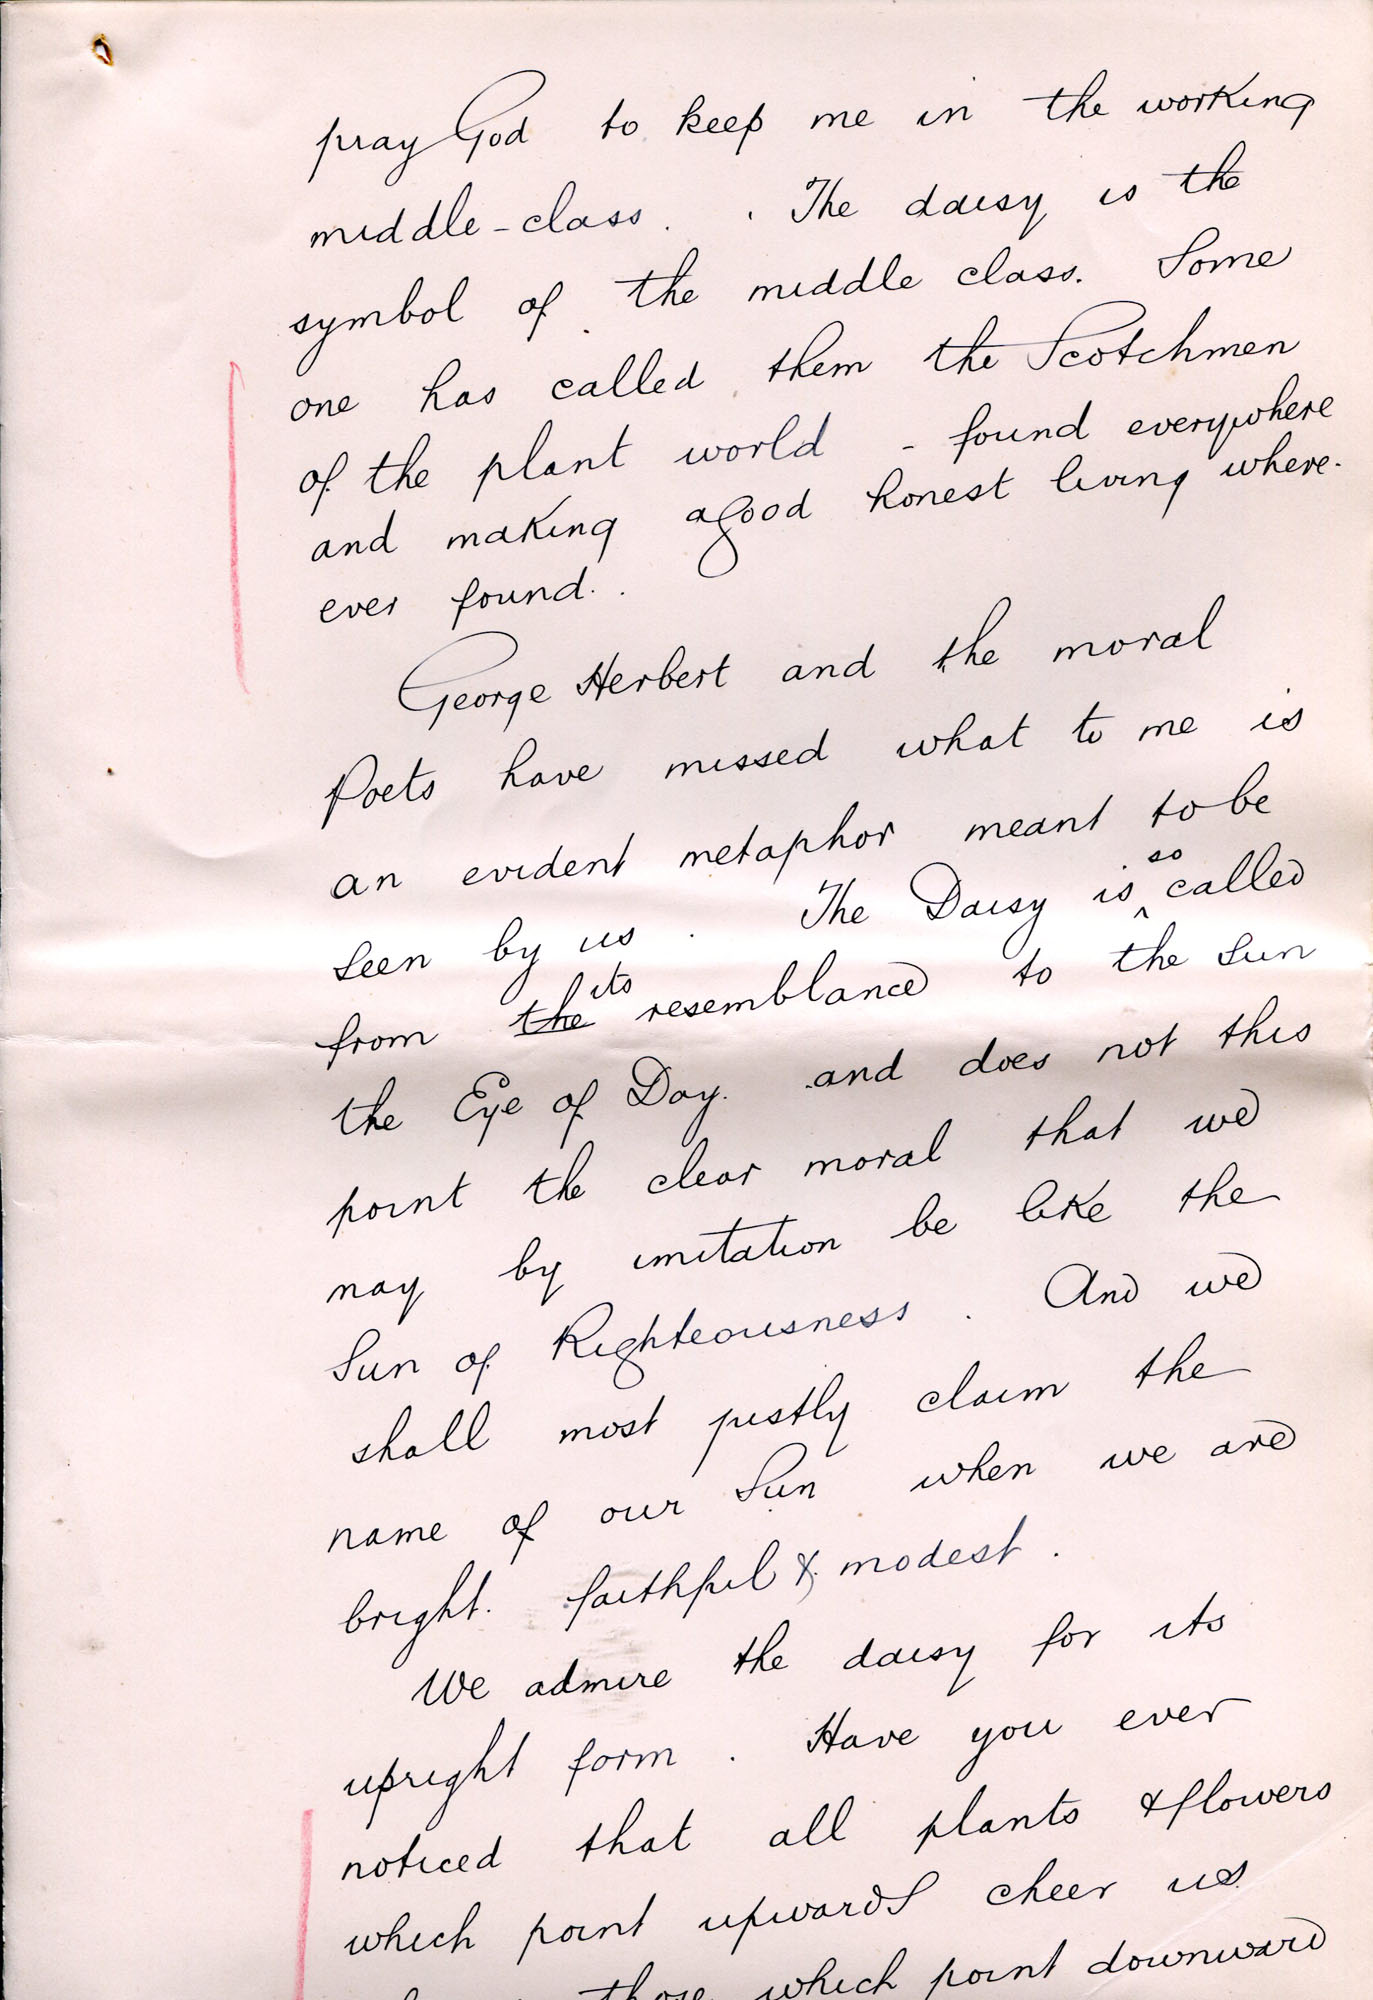 pray God to keep me in the working
middle-class. . The daisy is the
symbol of the middle class. Some
one has called them the Scotchmen
of the plant world - found everywhere
and making a good honest living where-
ever found..
George Herbert and the moral
Poets have missed what to me is
an evident metaphor meant to be
seen by us. The Daisy is so called
from the its resemblance to the sun
the Eye of Day. and does not this
point the clear moral that we
may by imitation be like the
Sun of Righteousness. And we
shall most justly claim the
name of our Sun when we are
bright. faithful & modest.
We admire the daisy for its
upright form. Have you ever
noticed that all plants & flowers
which point upwards cheer us
those which point downward